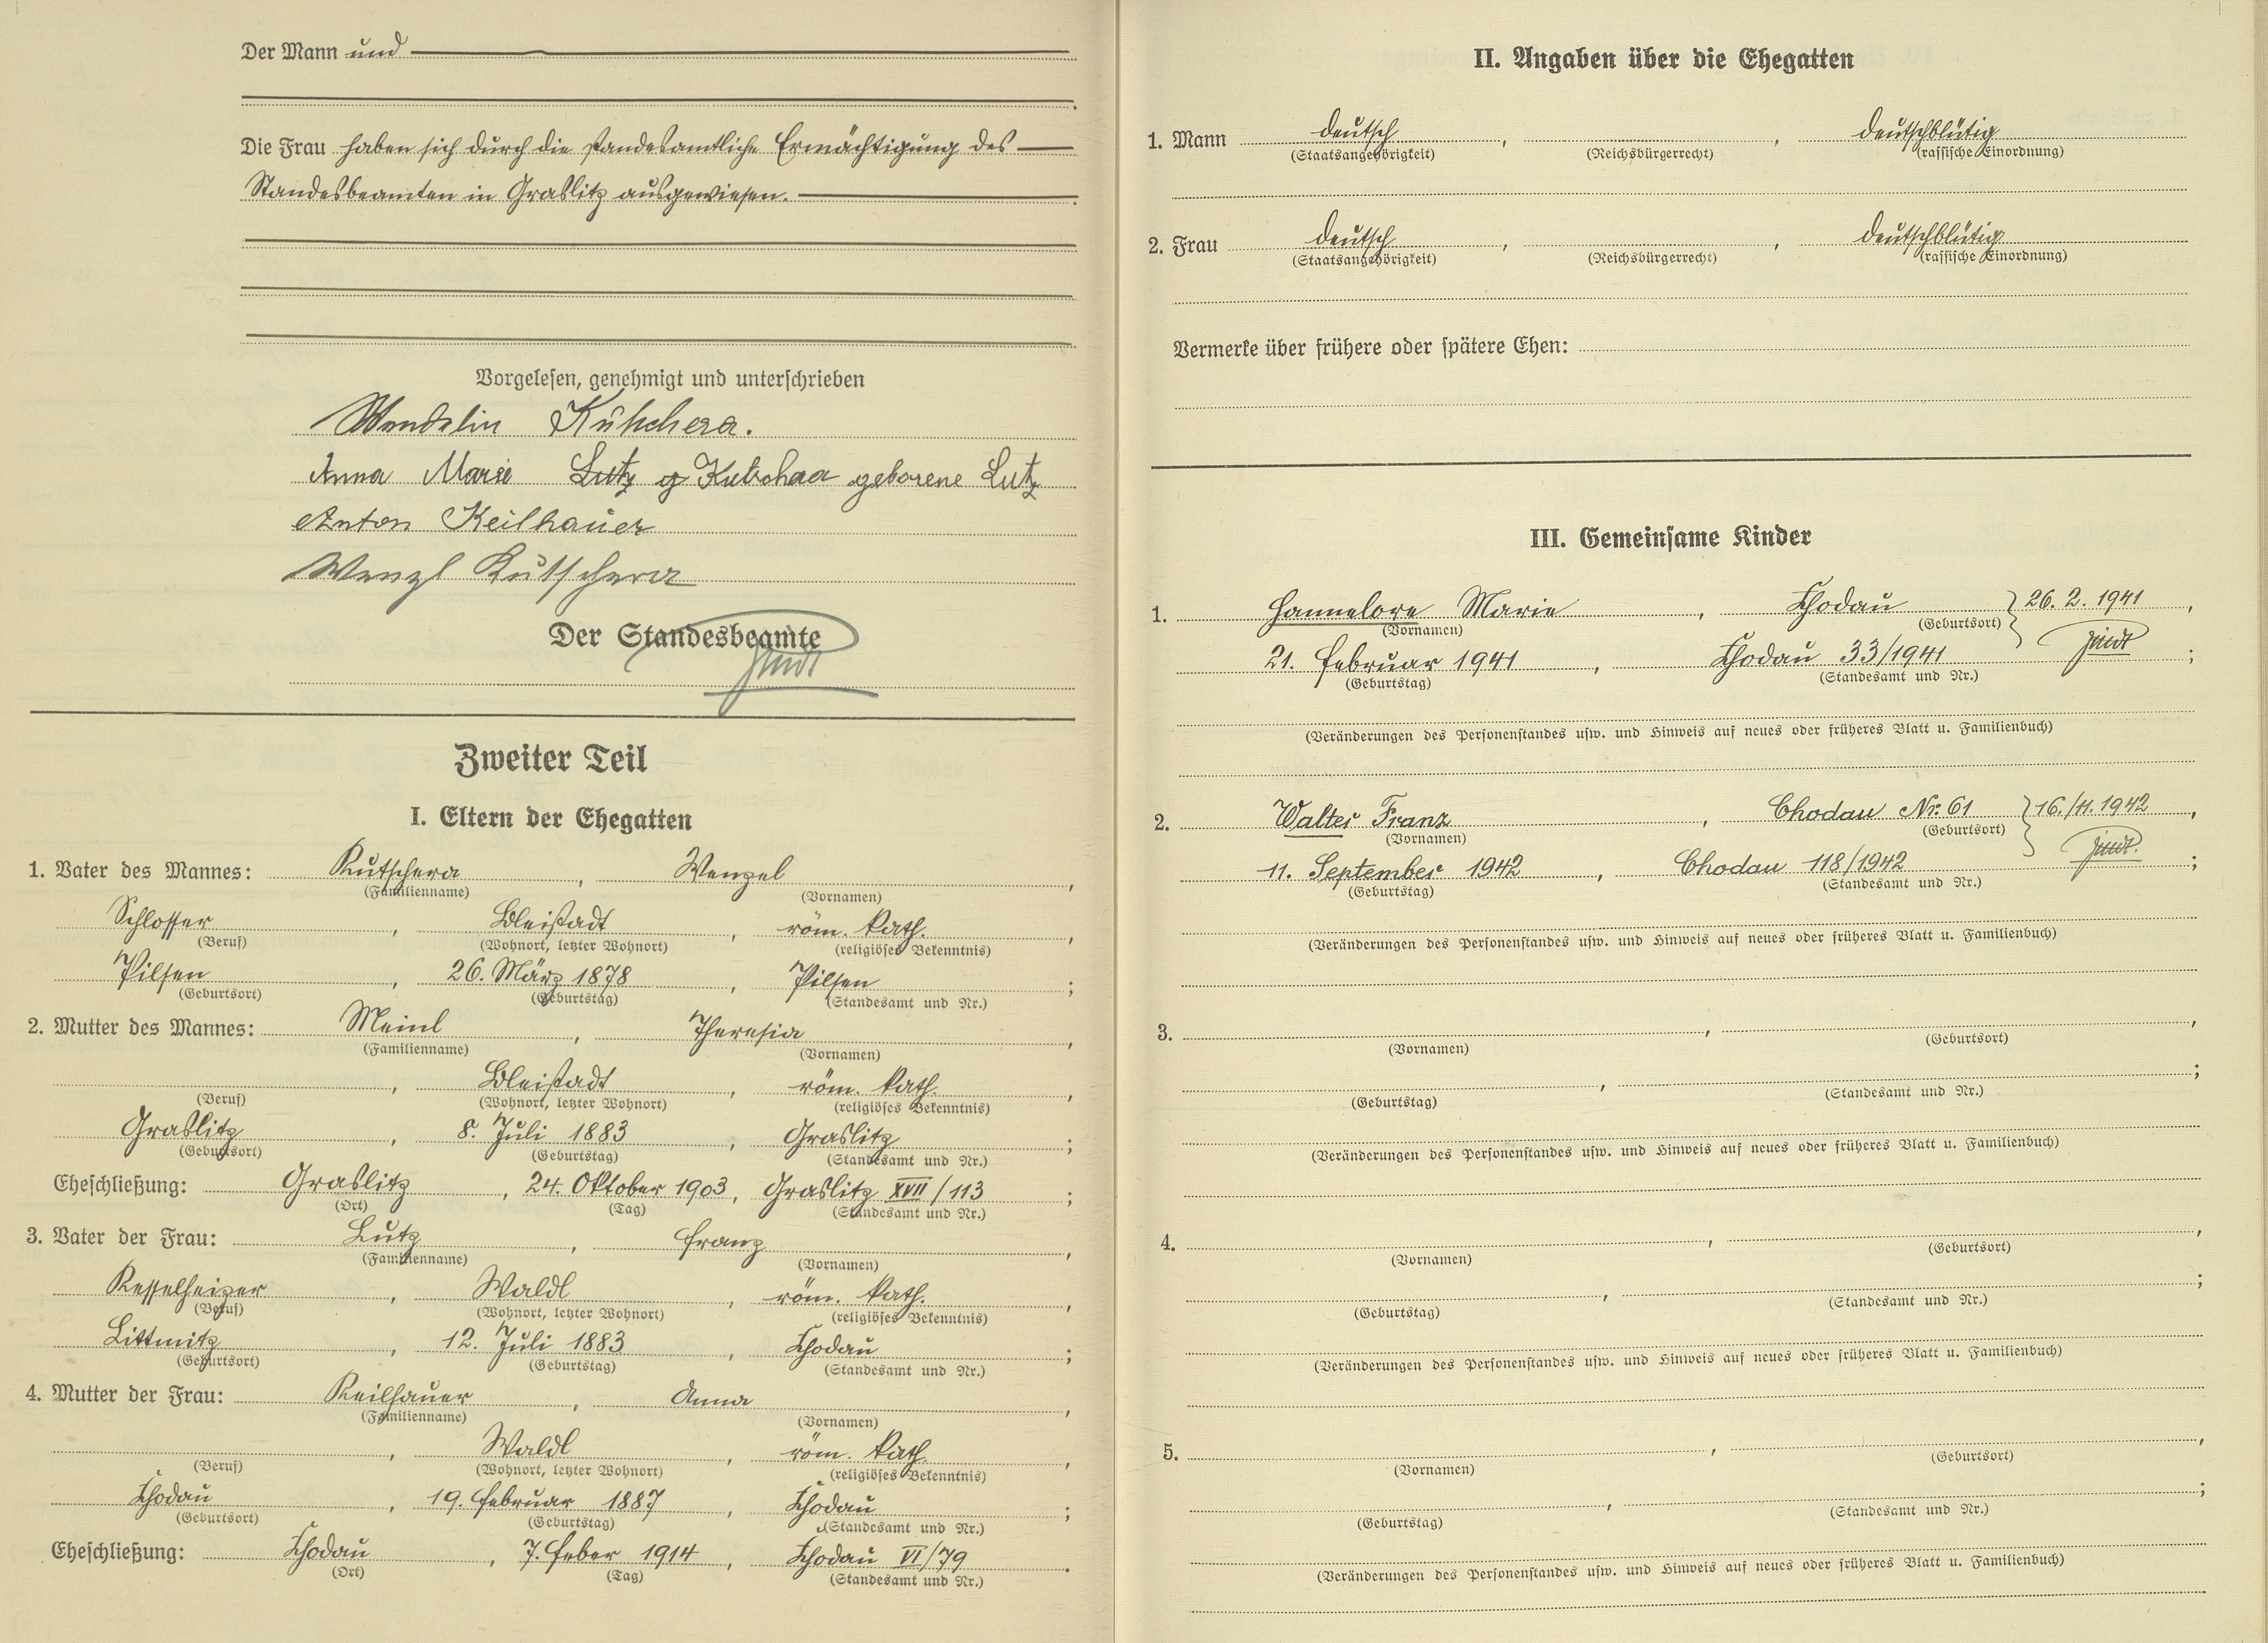 Der Mann und
Die Frau haben sich durch die standesamtliche Ermächtigung des
Standesbeamten in Graslitz ausgewiesen.
Vorgelesen, genehmigt und unterschrieben
Wendelin Kutschera.
Anna Marie Lutz g Kutschaa geborene Lutz
Anton Keilhauer
Wenzl Kutschera
Der Standesbeamte
Zweiter Teil
I. Eltern der Ehegatten
1. Vater des Mannes: Kutschera, Wenzel,
(Familienname) (Vornamen)
Schlosser, Bleistadt, röm. kath.,
(Beruf) (Wohnort, letzter Wohnort) (religiöses Bekenntnis)
Pilsen, 26. März 1878, Pilsen;
(Geburtsort) (Geburtstag) (Standesamt und Nr.)
2. Mutter des Mannes: Meinl, Theresia,
(Familienname) (Vornamen)
, Bleistadt, röm. kath.,
(Beruf) (Wohnort, letzter Wohnort) (religiöses Bekenntnis)
Graslitz, 8. Juli 1883, Graslitz;
(Geburtsort) (Geburtstag) (Standesamt und Nr.)
Eheschließung: Graslitz, 24. Oktober 1903, Graslitz XVII/113;
(Ort) (Tag) (Standesamt und Nr.)
3. Vater der Frau: Lutz, Franz,
(Familienname) (Vornamen)
Kesselheizer, Waldl, röm. kath.,
(Beruf) (Wohnort, letzter Wohnort) (religiöses Bekenntnis)
Littmitz, 12. Juli 1883, Chodau;
(Geburtsort) (Geburtstag) (Standesamt und Nr.)
4. Mutter der Frau: Keilhauer, Anna,
(Familienname) (Vornamen)
, Waldl, röm. kath.,
(Beruf) (Wohnort, letzter Wohnort) (religiöses Bekenntnis)
Chodau, 19. Februar 1887, Chodau;
(Geburtsort) (Geburtstag) (Standesamt und Nr.)
Eheschließung: Chodau, 7. Feber 1914, Chodau VI/79.
(Ort) (Tag) (Standesamt und Nr.)
II. Angaben über die Ehegatten
1. Mann deutsch, , deutschblütig
(Staatsangehörigkeit) (Reichsbürgerrecht) (rassische Einordnung)
2. Frau deutsch, , deutschblütig
(Staatsangehörigkeit) (Reichsbürgerrecht) (rassische Einordnung)
Vermerke über frühere oder spätere Ehen:
III. Gemeinsame Kinder
1. Hannelore Marie, Chodau } 26. 2. 1941,
(Vornamen) (Geburtsort)
21. Februar 1941, Chodau 33/1941;
(Geburtstag) (Standesamt und Nr.)
(Veränderungen des Personenstandes usw. und Hinweis auf neues oder früheres Blatt u. Familienbuch)
2. Walter Franz, Chodau Nr. 61 } 16./11. 1942,
(Vornamen) (Geburtsort)
11. September 1942, Chodau 118/1942;
(Geburtstag) (Standesamt und Nr.)
(Veränderungen des Personenstandes usw. und Hinweis auf neues oder früheres Blatt u. Familienbuch)
3. , ,
(Vornamen) (Geburtsort)
, ;
(Geburtstag) (Standesamt und Nr.)
(Veränderungen des Personenstandes usw. und Hinweis auf neues oder früheres Blatt u. Familienbuch)
4. , ,
(Vornamen) (Geburtsort)
, ;
(Geburtstag) (Standesamt und Nr.)
(Veränderungen des Personenstandes usw. und Hinweis auf neues oder früheres Blatt u. Familienbuch)
5. , ,
(Vornamen) (Geburtsort)
, ;
(Geburtstag) (Standesamt und Nr.)
(Veränderungen des Personenstandes usw. und Hinweis auf neues oder früheres Blatt u. Familienbuch)